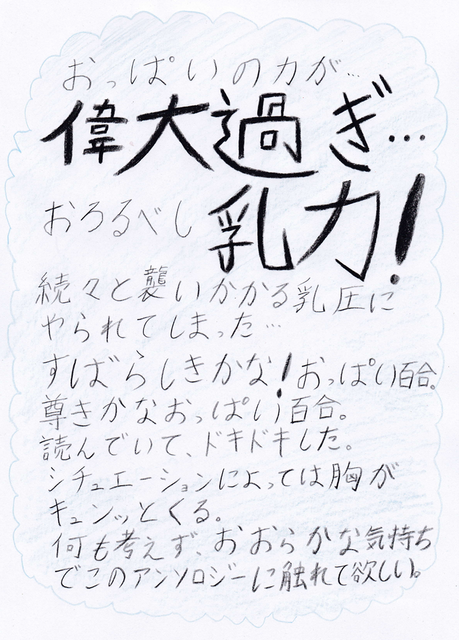 おっぱいの力が…
偉大過ぎ…
おろるべし 乳力!
続々と襲いかかる乳圧に
やられてしまった…
すばらしきかな!おっぱい百合。
尊きかなおっぱい百合。
読んでいて、ドキドキした。
シチュエーションによっては胸が
キュンッとくる。
何も考えず、おおらかな気持ち
でこのアンソロジーに触れて欲しい。